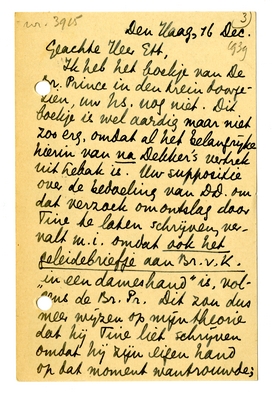 nr. 3915
3)
Den Haag, 16 Dec.
1939
Geachte Heer Ett,
Ik heb het boekje van De
Br. Prince in den trein doorge-
zien, uw hs. nog niet. Dit
boekje is wel aardig maar niet
zoo erg, omdat al het belangrijke
hierin van na Dekker's vertrek
uit Lebak is. Uw suppositie
over de bedoeling van D.D. om
dat verzoek om ontslag door
Tine te laten schrijven, ver-
valt m.i. omdat ook het
geleidebriefje aan Br. v. K.
"in een dameshand" is, vol-
gens de Br. Pr. Dit zou dus
meer wijzen op mijn theorie
dat hij Tine liet schrijven
omdat hij zijn eigen hand
op dat moment wantrouwde;